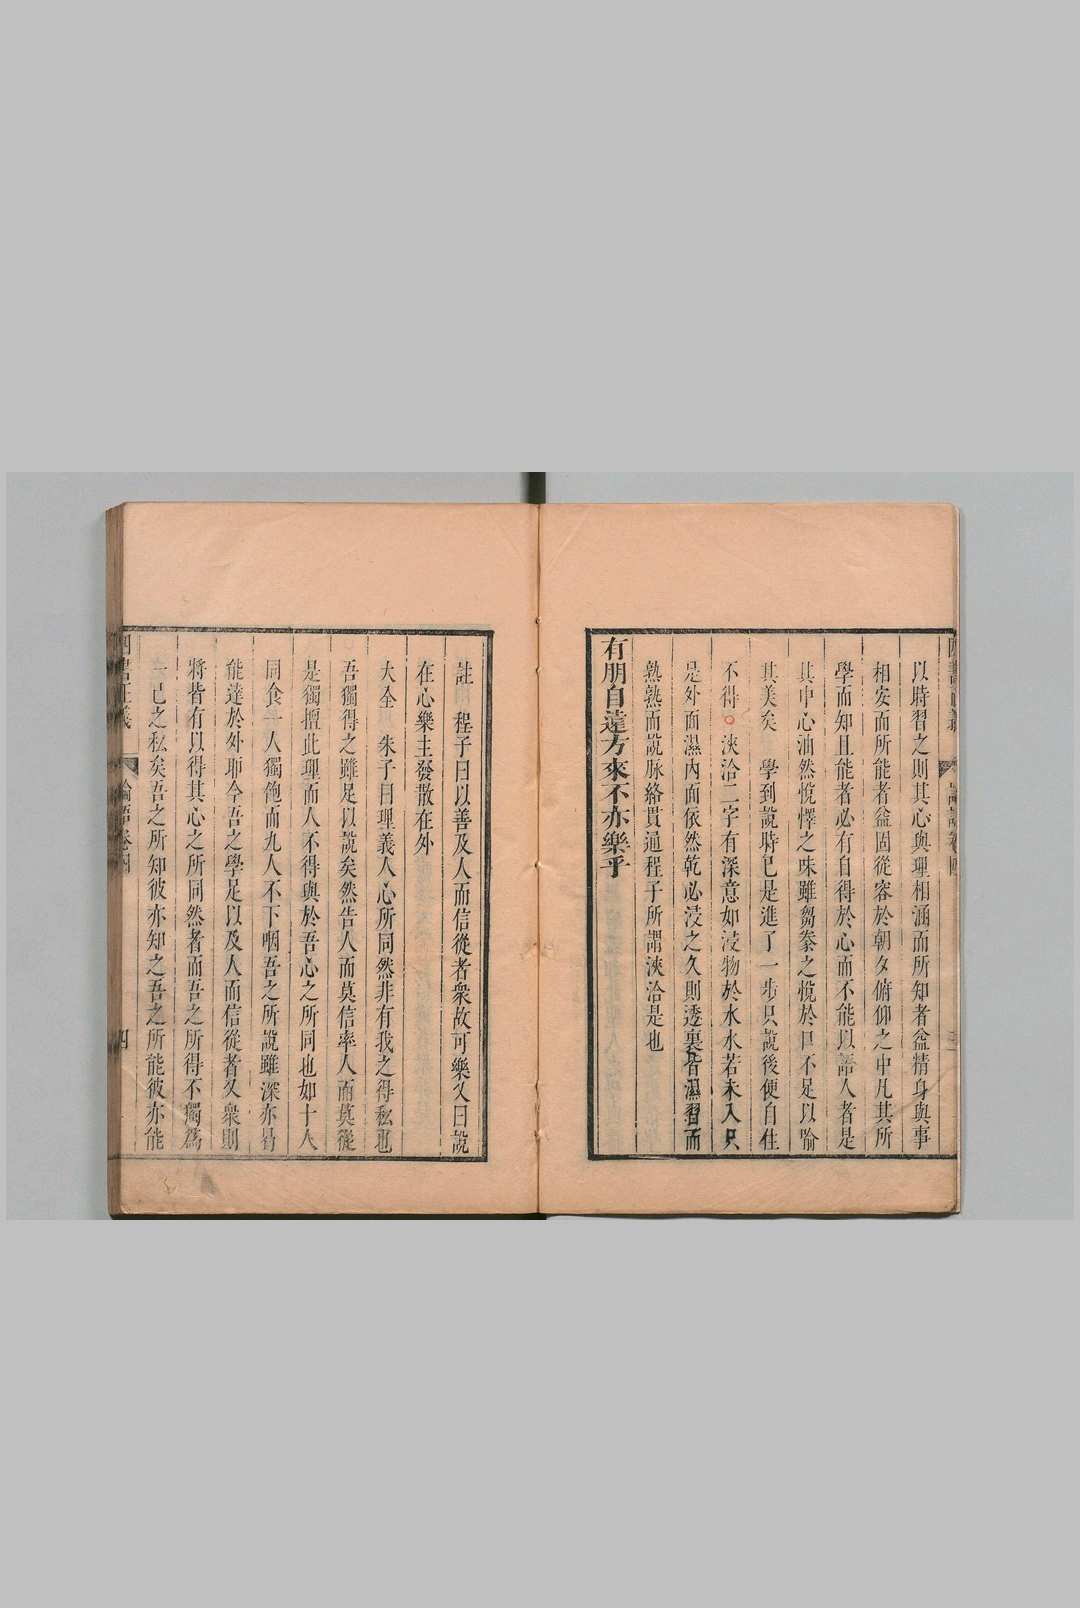 以時習之則其心與理相涵而所知者益精身與事
相安而所能者益固從容於朝夕俯仰之中凡其所
學而知且能者必有自得於心而不能以語人者是
其中心油然悅懌之味雖芻豢之悅於口不足以喻
其美矣　學到說時已是進了一步只說後便自住
不得○浹洽二字有深意如浸物於水水若未入只
是外面濕內面依然乾必浸之久則透裏皆濕習而
熟熟而說脉絡貫通程子所謂浹洽是也
有朋自遠方來不亦樂乎
註　程子曰以善及人而信從者衆故可樂又曰說
在心樂主發散在外
大全　朱子曰理義人心所同然非有我之得私也
吾獨得之雖足以說矣然告人而莫信率人而莫從
是獨擅此理而人不得與於吾心之所同也如十人
同食一人獨飽而九人不下咽吾之所說雖深亦曷
能達於外耶今吾之學足以及人而信從者又衆則
將皆有以得其心之所同然者而吾之所得不獨爲
一己之私矣吾之所知彼亦知之吾之所能彼亦能
論語卷四
四